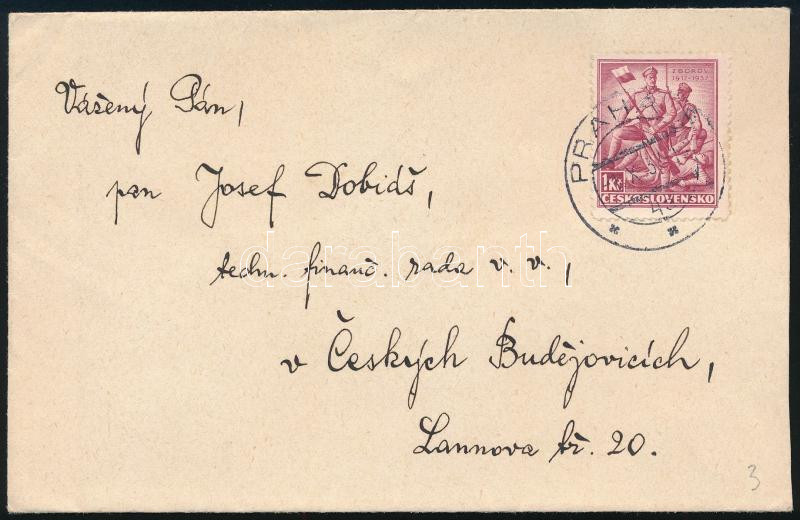 ZBOROV
1917-1937
PRAHA
1Kč
ČESKOSLOVENSKO
Vážený Pán,
pan Josef Dobiáš,
techn. financ. rada v. v.,
v Českých Budějovicích,
Lannova tř. 20.
darabanth
3